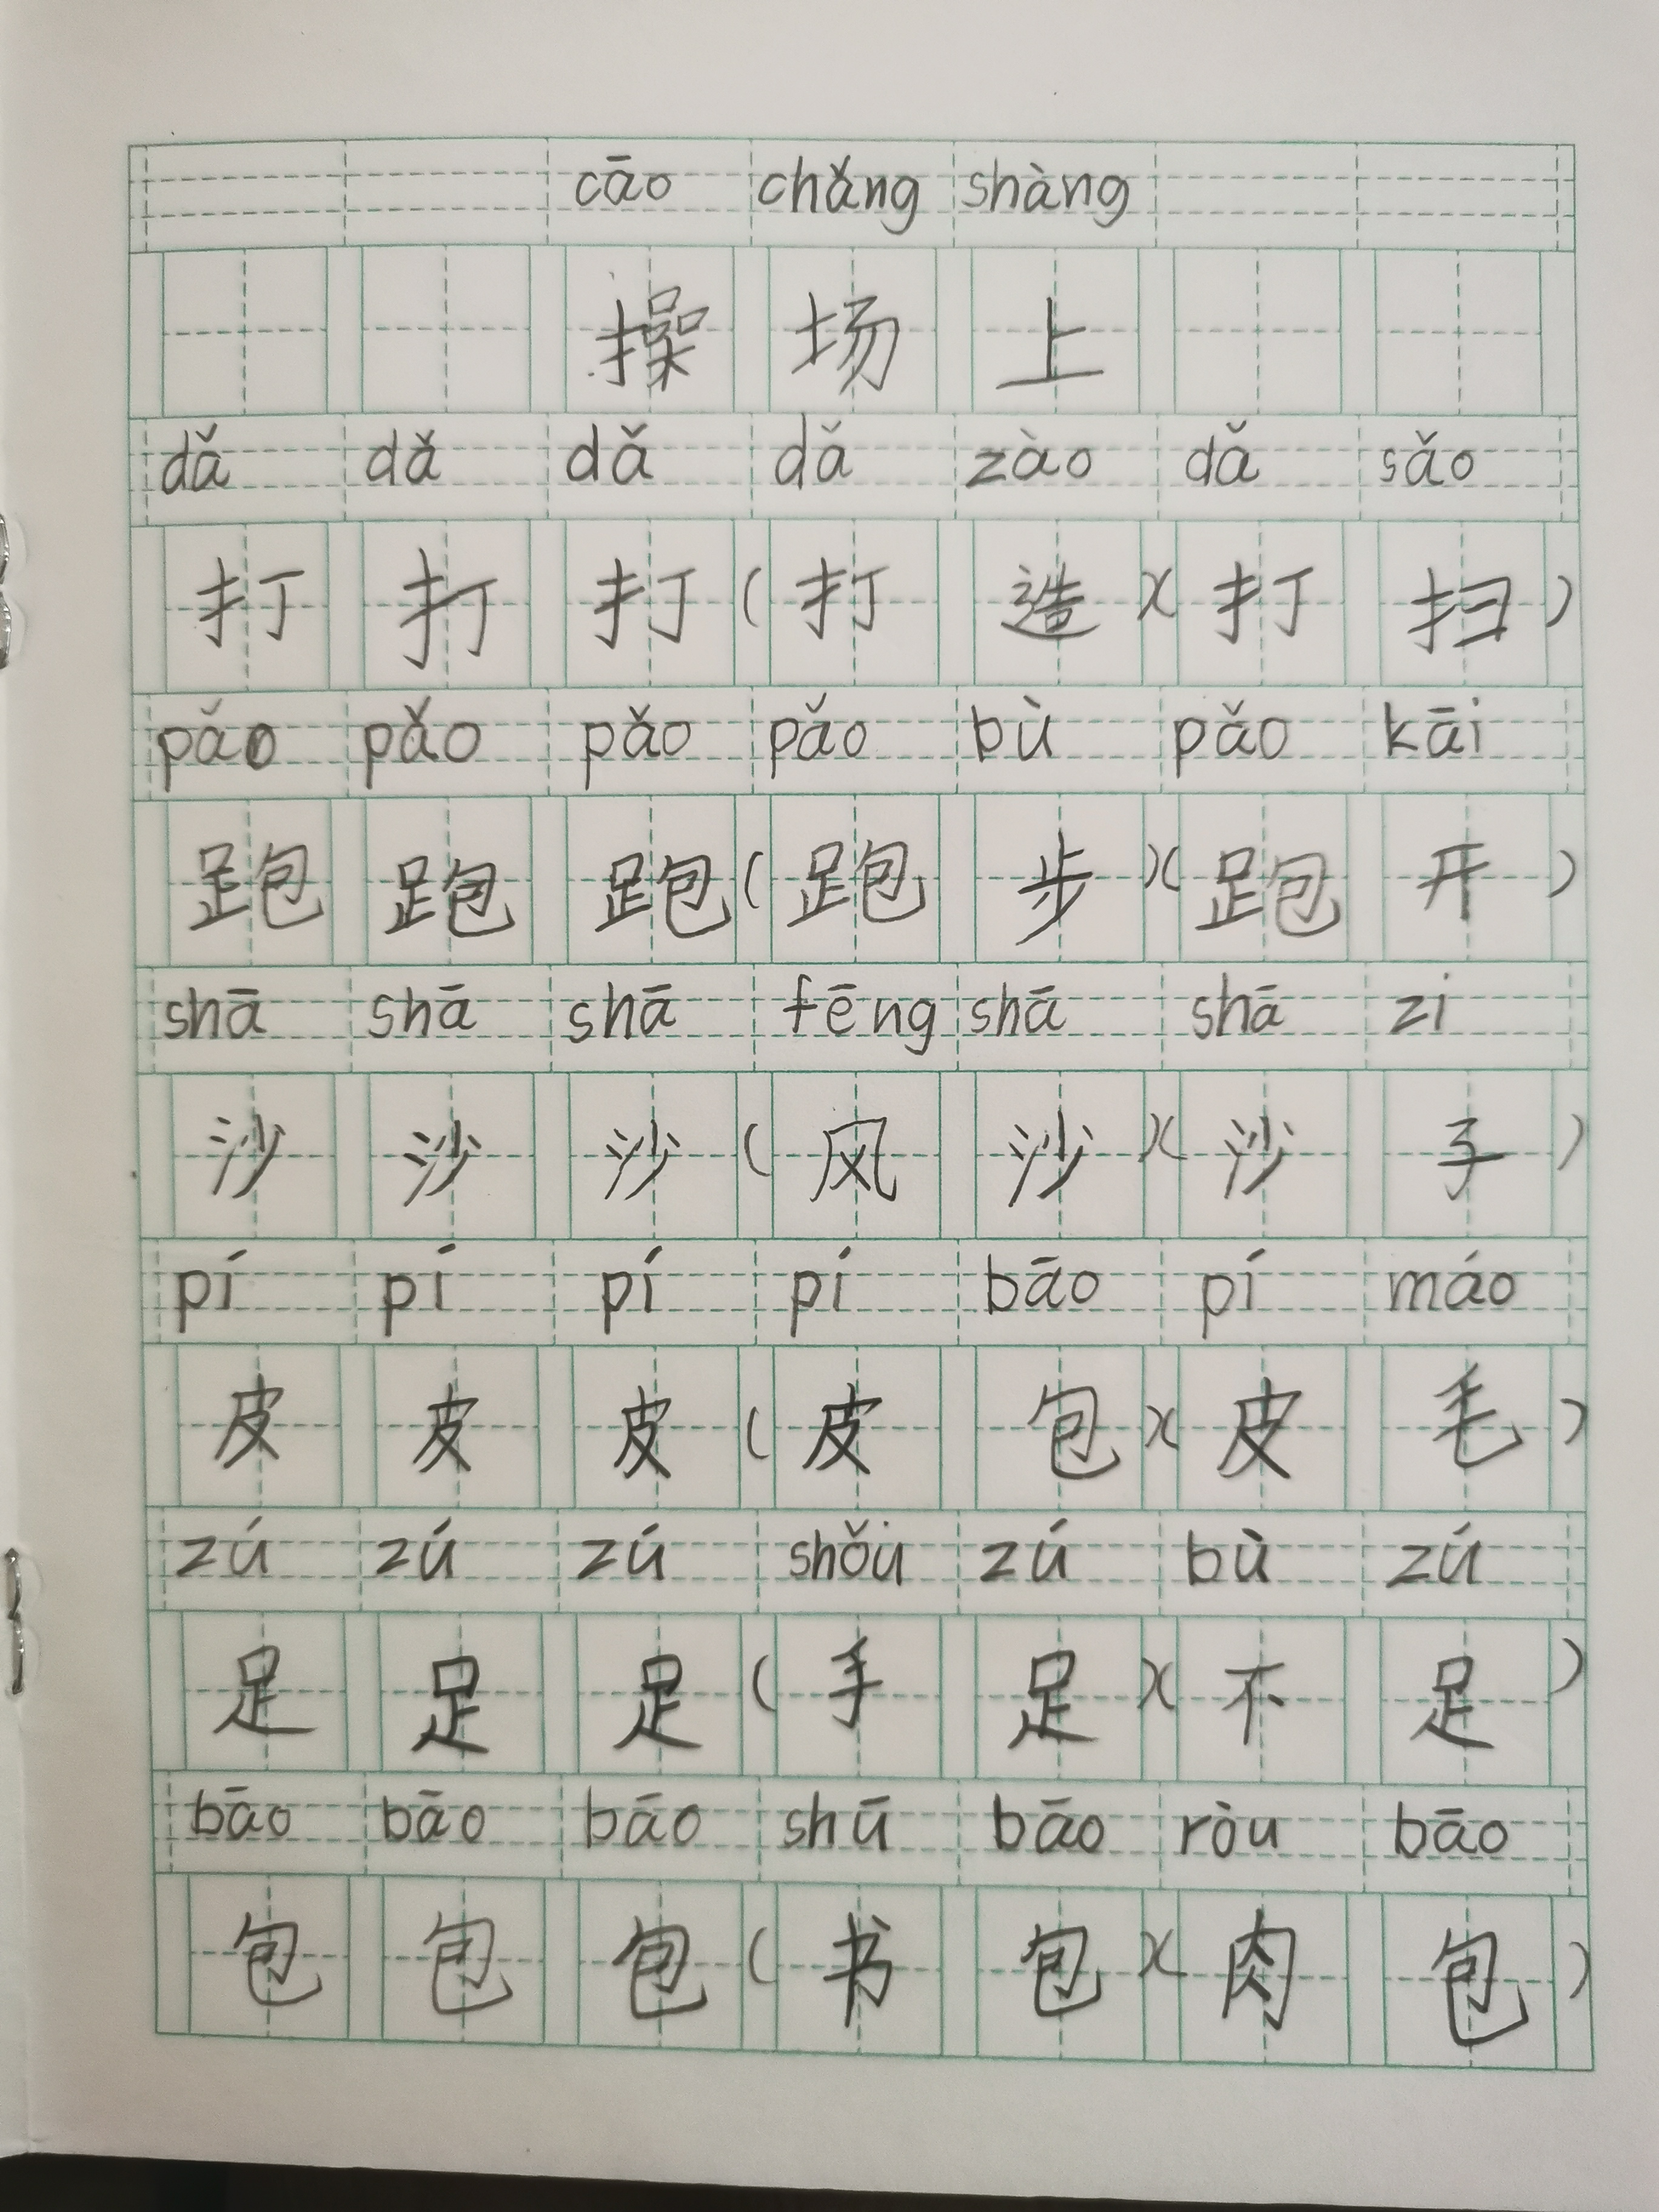 cāo chǎng shàng
操 场 上
dǎ dǎ dǎ dǎ zào dǎ sǎo
打 打 打 ( 打 造 )( 打 扫 )
pǎo pǎo pǎo pǎo bù pǎo kāi
跑 跑 跑 ( 跑 步 )( 跑 开 )
shā shā shā fēng shā shā zi
沙 沙 沙 ( 风 沙 )( 沙 子 )
pí pí pí pí bāo pí máo
皮 皮 皮 ( 皮 包 )( 皮 毛 )
zú zú zú shǒu zú bù zú
足 足 足 ( 手 足 )( 不 足 )
bāo bāo bāo shū bāo ròu bāo
包 包 包 ( 书 包 )( 肉 包 )